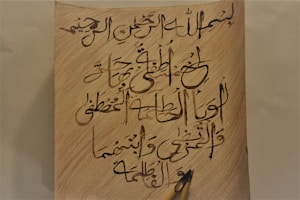 بسم الله الرحمن الرحيم
لي خمسة أطفي بها
الوباء الحاطمة المصطفى
والمرتضى وابنهما
والفاطمة